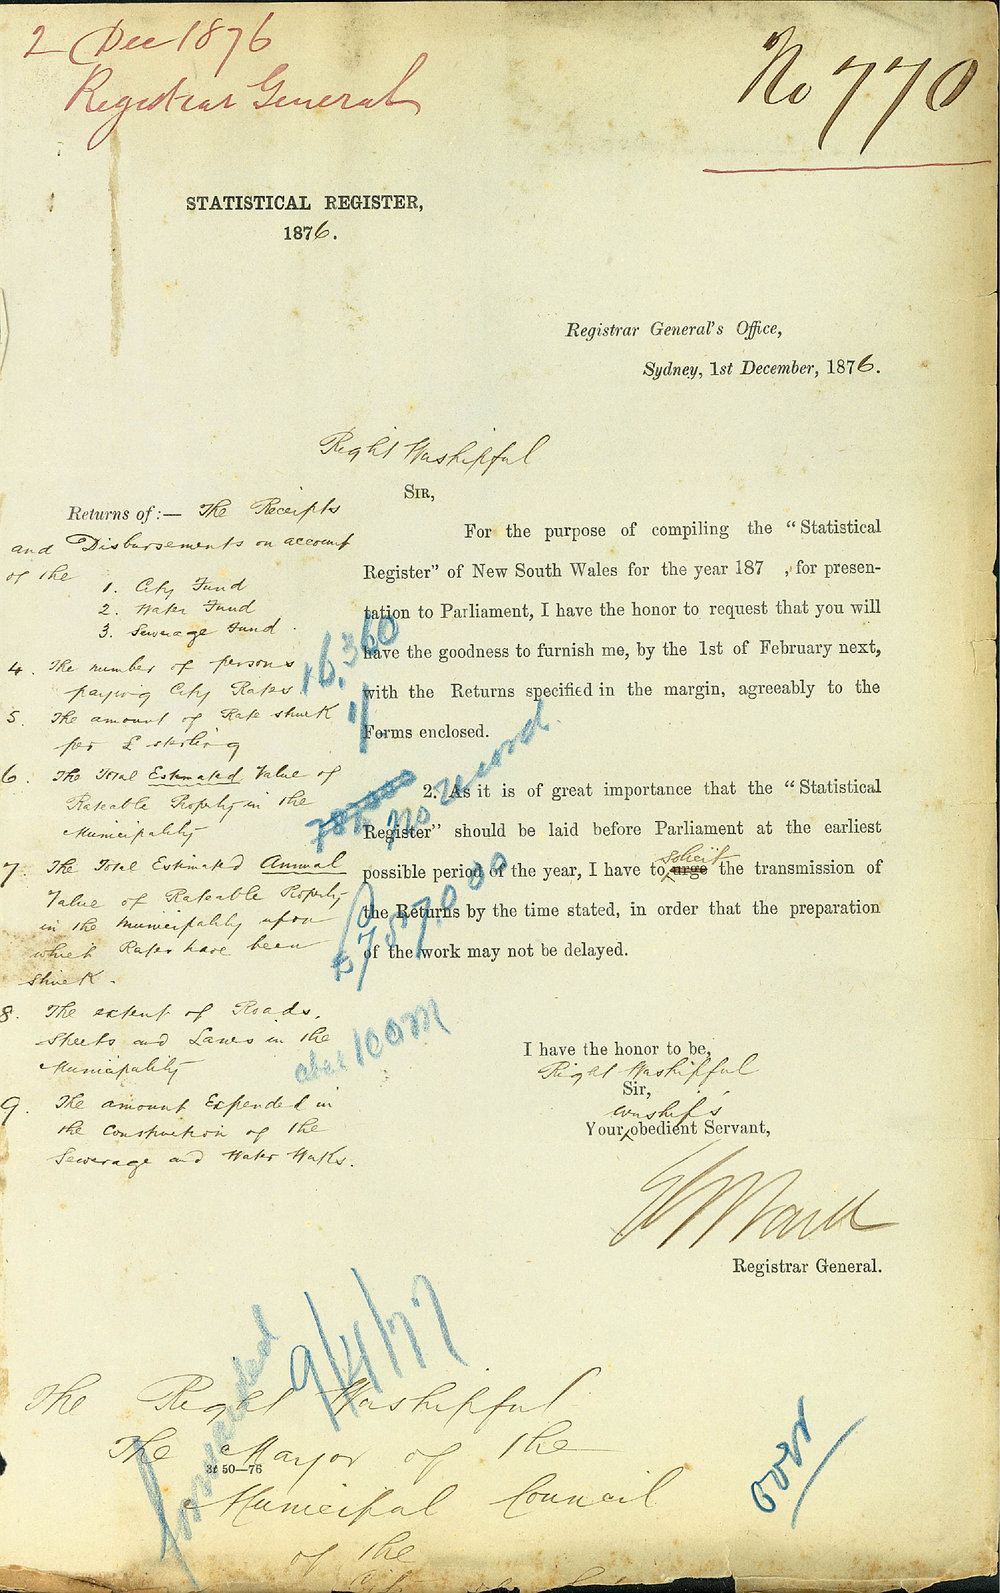 2 Dec 1876
Registrar General
No 770
STATISTICAL REGISTER,
1876.
Registrar General's Office,
Sydney, 1st December, 1876.
Right Worshipful
SIR,
Returns of:— The Receipts
and Disbursements on account
of the
1. City Fund
2. Water Fund
3. Sewerage Fund.
4. The number of persons
paying City Rates
16,360
5. The amount of Rate struck
per £ sterling
1/
6. The Total Estimated Value of
Rateable Property in the
Municipality
No record
7. The Total Estimated Annual
Value of Rateable Property
in the Municipality upon
which Rates have been
struck.
8. The extent of Roads,
Streets and Lanes in the
Municipality
100 m
9. The amount Expended in
the Construction of the
Sewerage and Water Works.
For the purpose of compiling the "Statistical
Register" of New South Wales for the year 187 , for presen-
tation to Parliament, I have the honor to request that you will
have the goodness to furnish me, by the 1st of February next,
with the Returns specified in the margin, agreeably to the
Forms enclosed.
2. As it is of great importance that the "Statistical
Register" should be laid before Parliament at the earliest
solicit
possible period of the year, I have to urge the transmission of
the Returns by the time stated, in order that the preparation
of the work may not be delayed.
I have the honor to be,
Right Worshipful
Sir,
Worship's
Your obedient Servant,
Ward
Registrar General.
forwarded
9/4/77
The Right Worshipful
The Mayor of the
3t 50—76
Municipal Council
of the
over